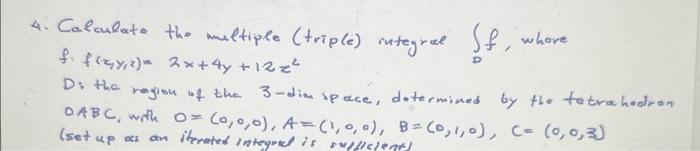 4. Calculate the multiple (triple) integral ∫_D f, where
f: f(x,y,z)= 2x+4y+12z²
D: the region of the 3-dim space, determined by the tetrahedron
OABC, with O=(0,0,0), A=(1,0,0), B=(0,1,0), C=(0,0,3)
(set up as an iterated integral is sufficient)